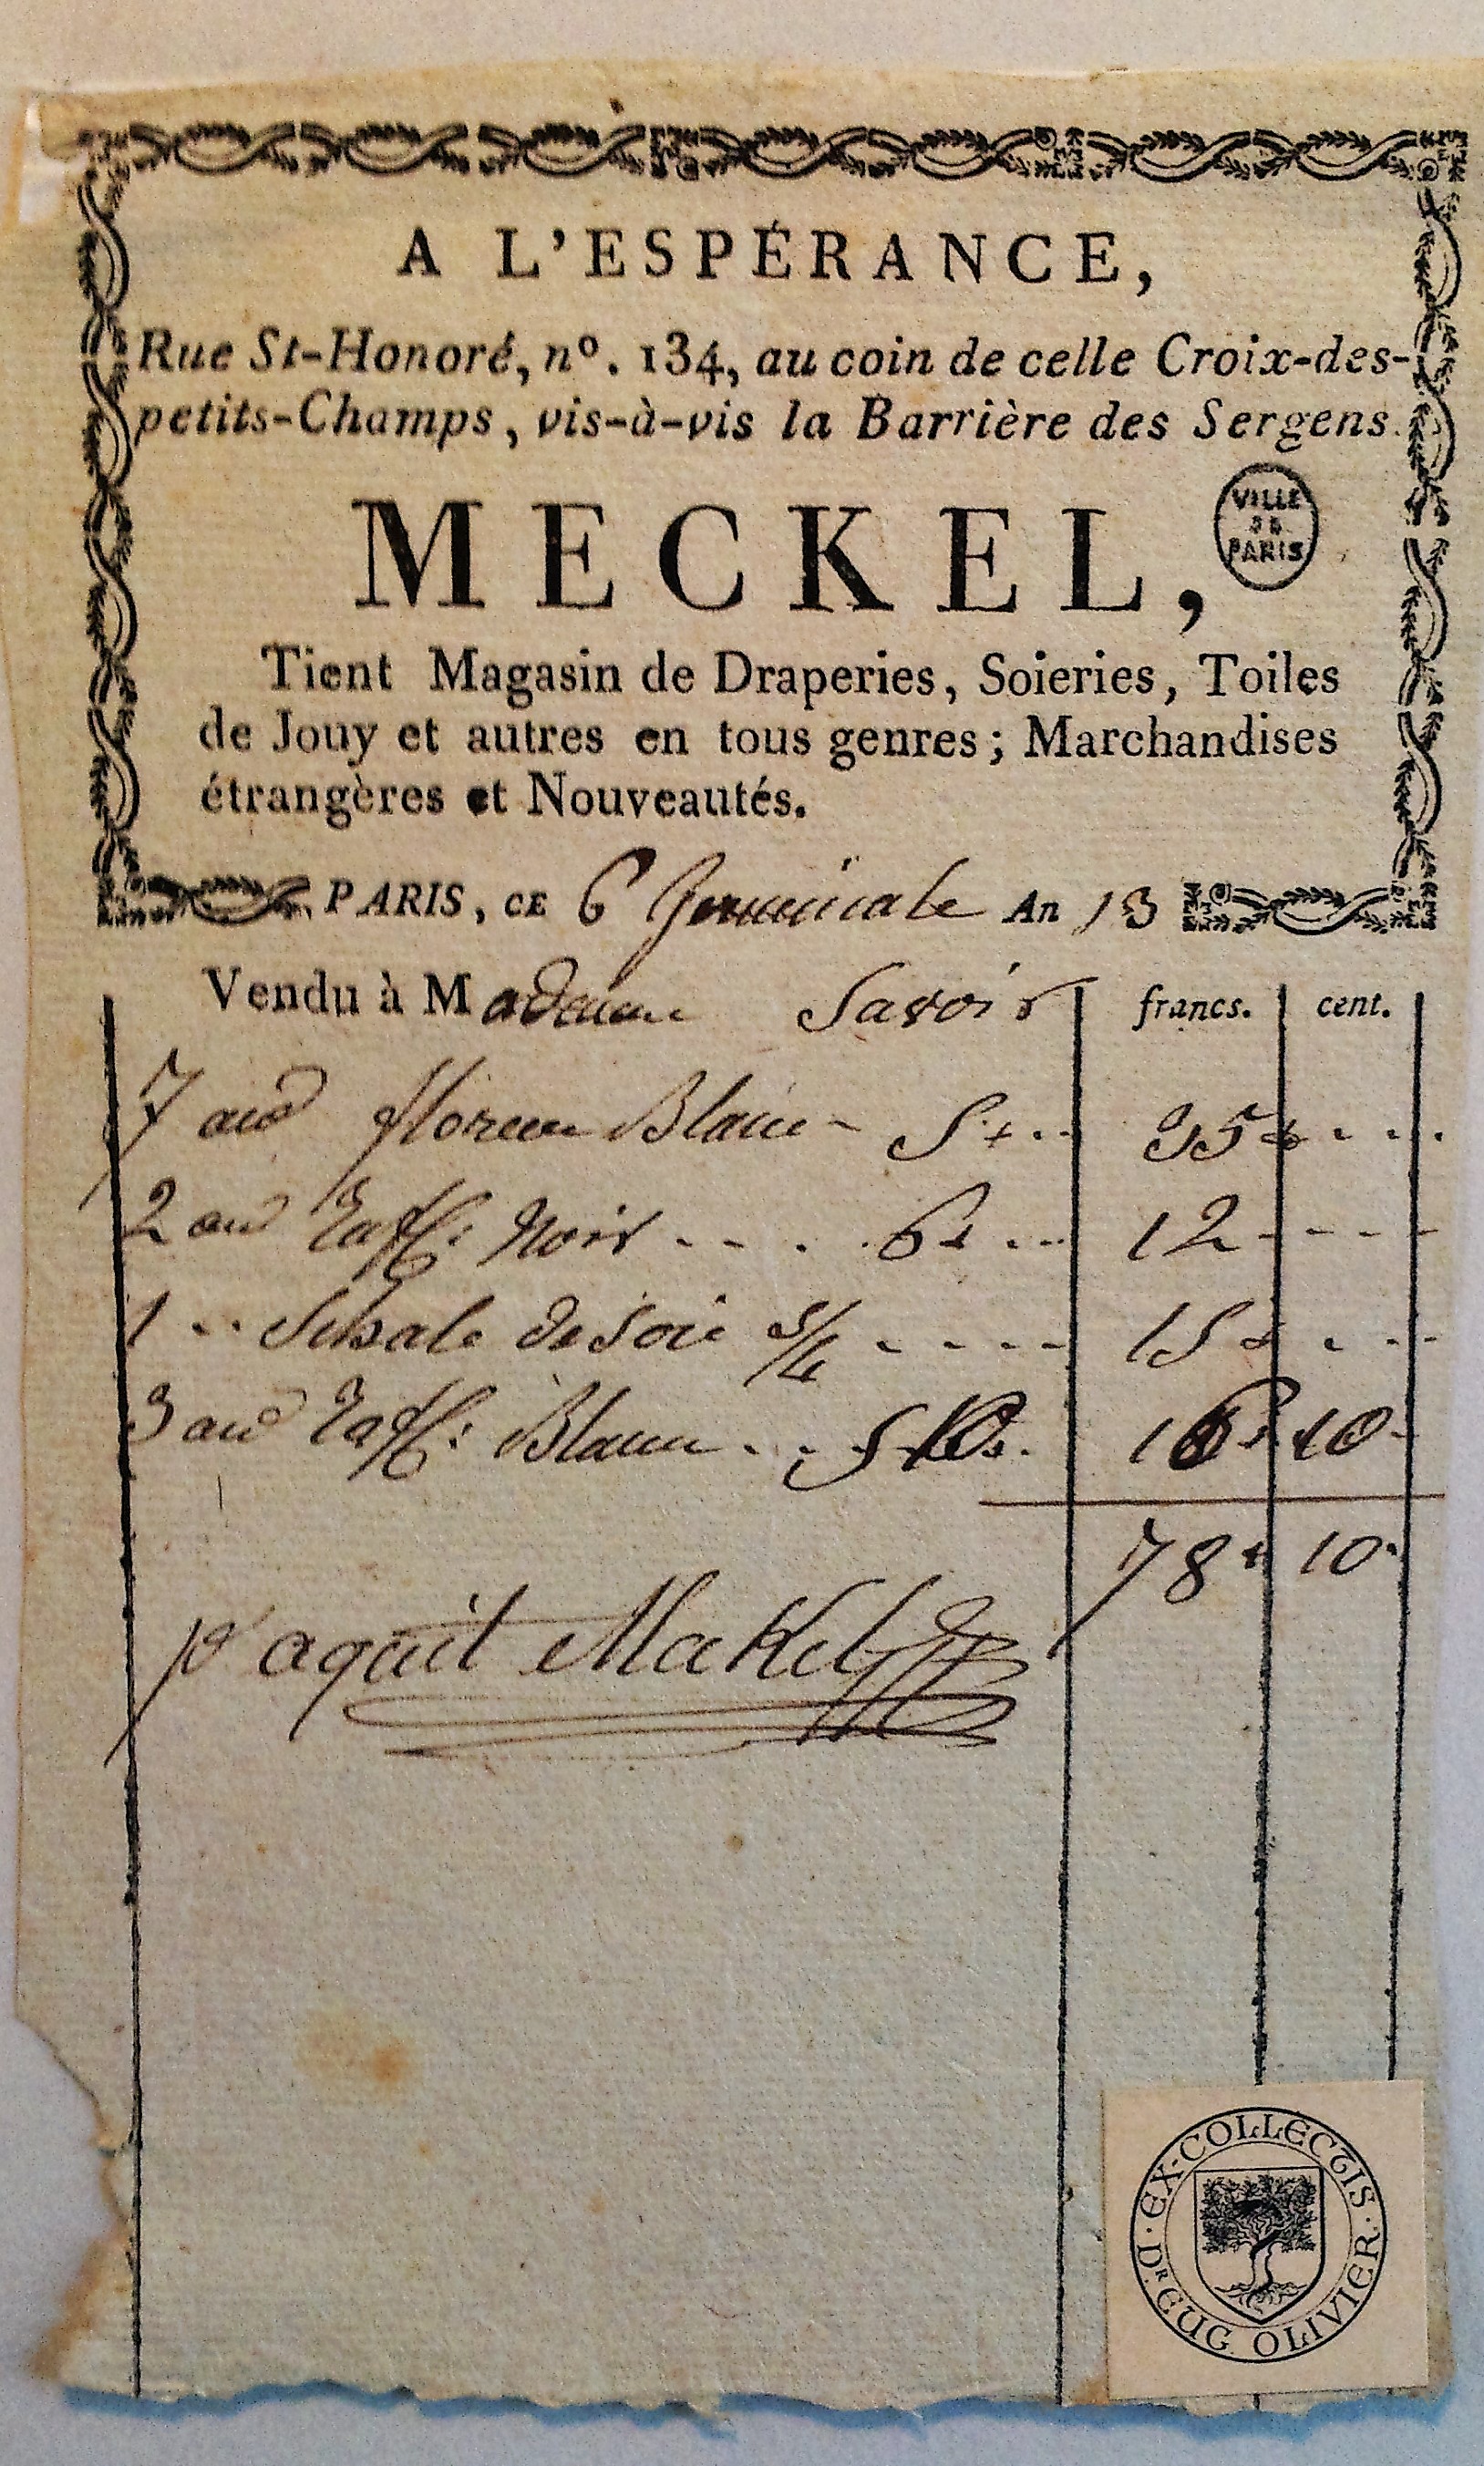 A L'ESPÉRANCE,
Rue St-Honoré, nº. 134, au coin de celle Croix-des-
petits-Champs, vis-à-vis la Barrière des Sergens.
MECKEL,
VILLE
DE
PARIS
Tient Magasin de Draperies, Soieries, Toiles
de Jouy et autres en tous genres; Marchandises
étrangères et Nouveautés.
PARIS, CE 6 Germinale An 13
Vendu à Madame Savoir francs. cent.
7 florence Blanc 5 35
2 Taff: Noir 6 12
1 Schale de Soie 5/4 15
3 Taff: Blanc 5 10 16 10
78 10
pr aquit Mekel
EX·COLLECTIS·DR·EUG·OLIVIER·